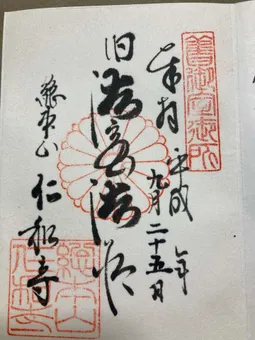 舊御室御所
奉拝
平成 年
九月二十五日
旧御室御所
総本山 仁和寺